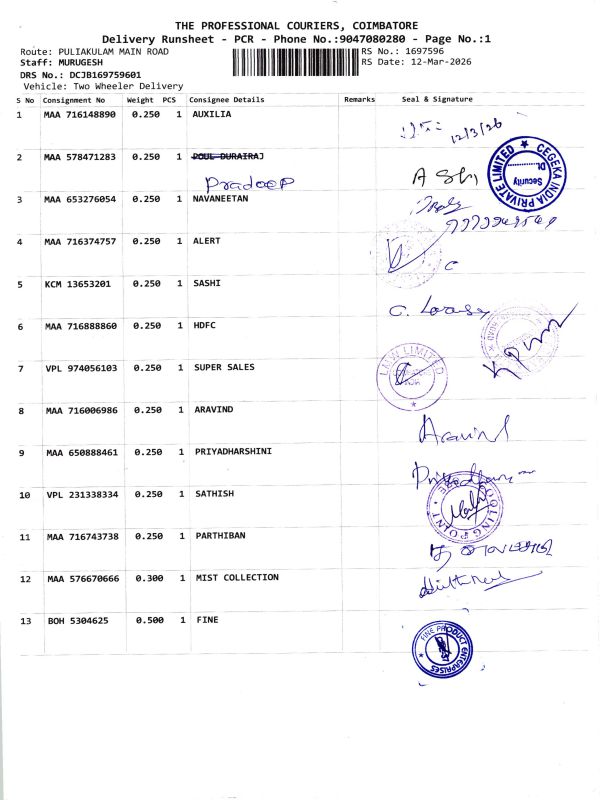 THE PROFESSIONAL COURIERS, COIMBATORE
Delivery Runsheet - PCR - Phone No.:9047080280 - Page No.:1
Route: PULIAKULAM MAIN ROAD RS No.: 1697596
Staff: MURUGESH RS Date: 12-Mar-2026
DRS No.: DCJB169759601
Vehicle: Two Wheeler Delivery
S No Consignment No Weight PCS Consignee Details Remarks Seal & Signature
1 MAA 716148890 0.250 1 AUXILIA
12/3/26
2 MAA 578471283 0.250 1 POUL DURAIRAJ
Pradeep
CEGEKA INDIA PRIVATE LIMITED
Security
Dt.
3 MAA 653276054 0.250 1 NAVANEETAN
4 MAA 716374757 0.250 1 ALERT
5 KCM 13653201 0.250 1 SASHI
6 MAA 716888860 0.250 1 HDFC
7 VPL 974056103 0.250 1 SUPER SALES
LMW LIMITED
8 MAA 716006986 0.250 1 ARAVIND
Aravind
9 MAA 650888461 0.250 1 PRIYADHARSHINI
10 VPL 231338334 0.250 1 SATHISH
POINT
11 MAA 716743738 0.250 1 PARTHIBAN
12 MAA 576670666 0.300 1 MIST COLLECTION
13 BOH 5304625 0.500 1 FINE
FINE PRODUCT ENTERPRISES